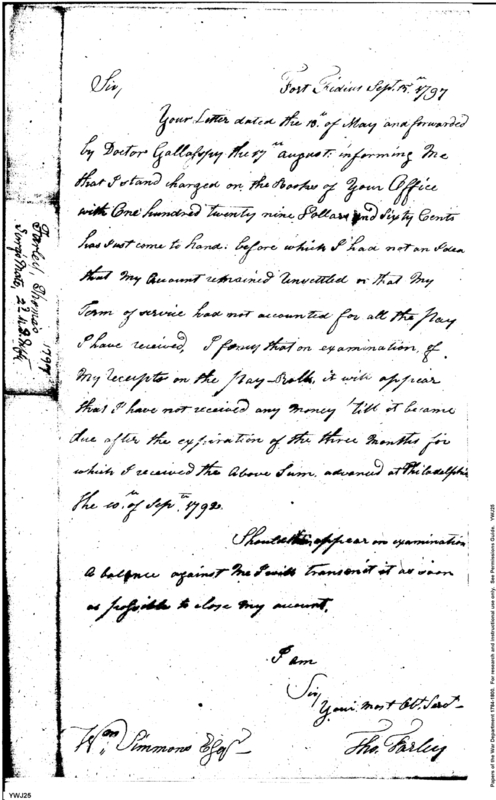 Fort Fidius Sept. 15th 1797
Sir,
Your Letter dated the 18th of May and forwarded
by Doctor Gallaspy the 17th august informing Me
that I stand charged on the Books of Your Office
with One hundred twenty nine Dollars and Sixty Cents
has Just come to hand: before which I had not an Idea
that My Account remained Unsettled or that My
Term of service had not accounted for all the Pay
I have received, I that on examination of
My receipts on the Pay-Rolls it will appear
that I have not received any money 'till it became
due after the expiration of the three months for
which I received the Above Sum advanced at Philadelphia
the 10th of Sepr. 1792.
Should appear on examination
A balance against Me I will transmit it as soon
as possible to close My account.
I am
Sir
Your most Obt. Servt
Wm. Simmons Esqr
Tho. Farley
Farley, Thomas
1797
Surgs. Mate, 2d
YWJ25
Papers of the War Department 1784-1800. For research and instructional use only. See Permissions Guide. YWJ25